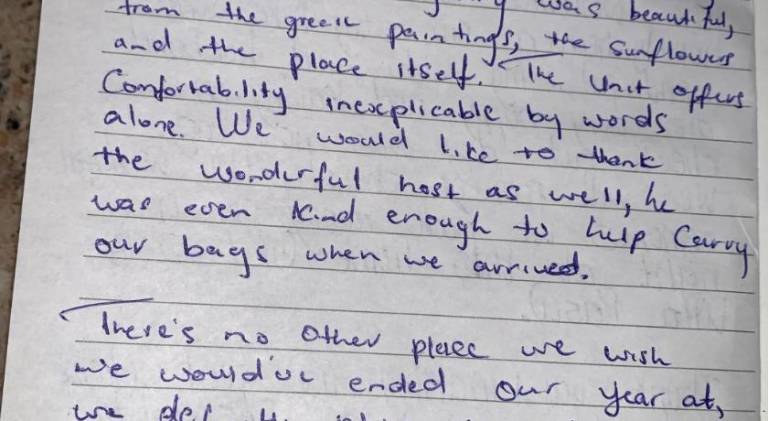 was beautiful,
from the greek paintings, the sunflowers
and the place itself. The unit offers
Comfortability inexplicable by words
alone. We would like to thank
the wonderful host as well, he
was even kind enough to help Carry
our bags when we arrived.
There's no other place we wish
we would've ended our year at,
we